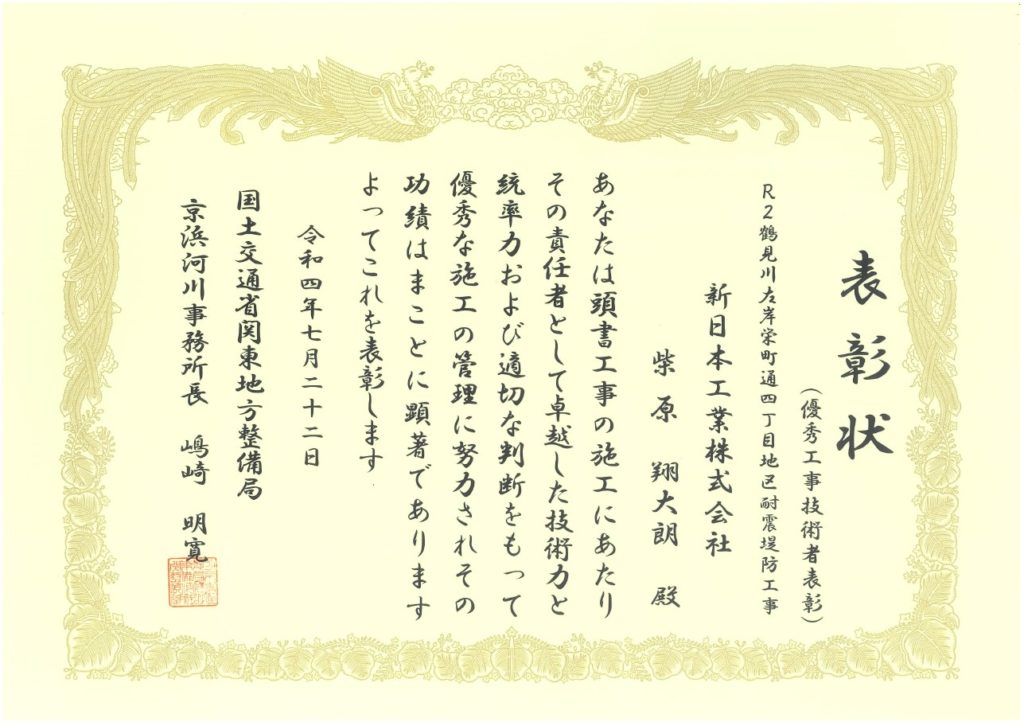 表彰状
（優秀工事技術者表彰）
R2鶴見川左岸栄町通四丁目地区耐震堤防工事
新日本工業株式会社
柴原 翔大朗 殿
あなたは頭書工事の施工にあたり
その責任者として卓越した技術力と
統率力および適切な判断をもって
優秀な施工の管理に努力されその
功績はまことに顕著であります
よってこれを表彰します
令和四年七月二十二日
国土交通省関東地方整備局
京浜河川事務所長 嶋崎 明寛